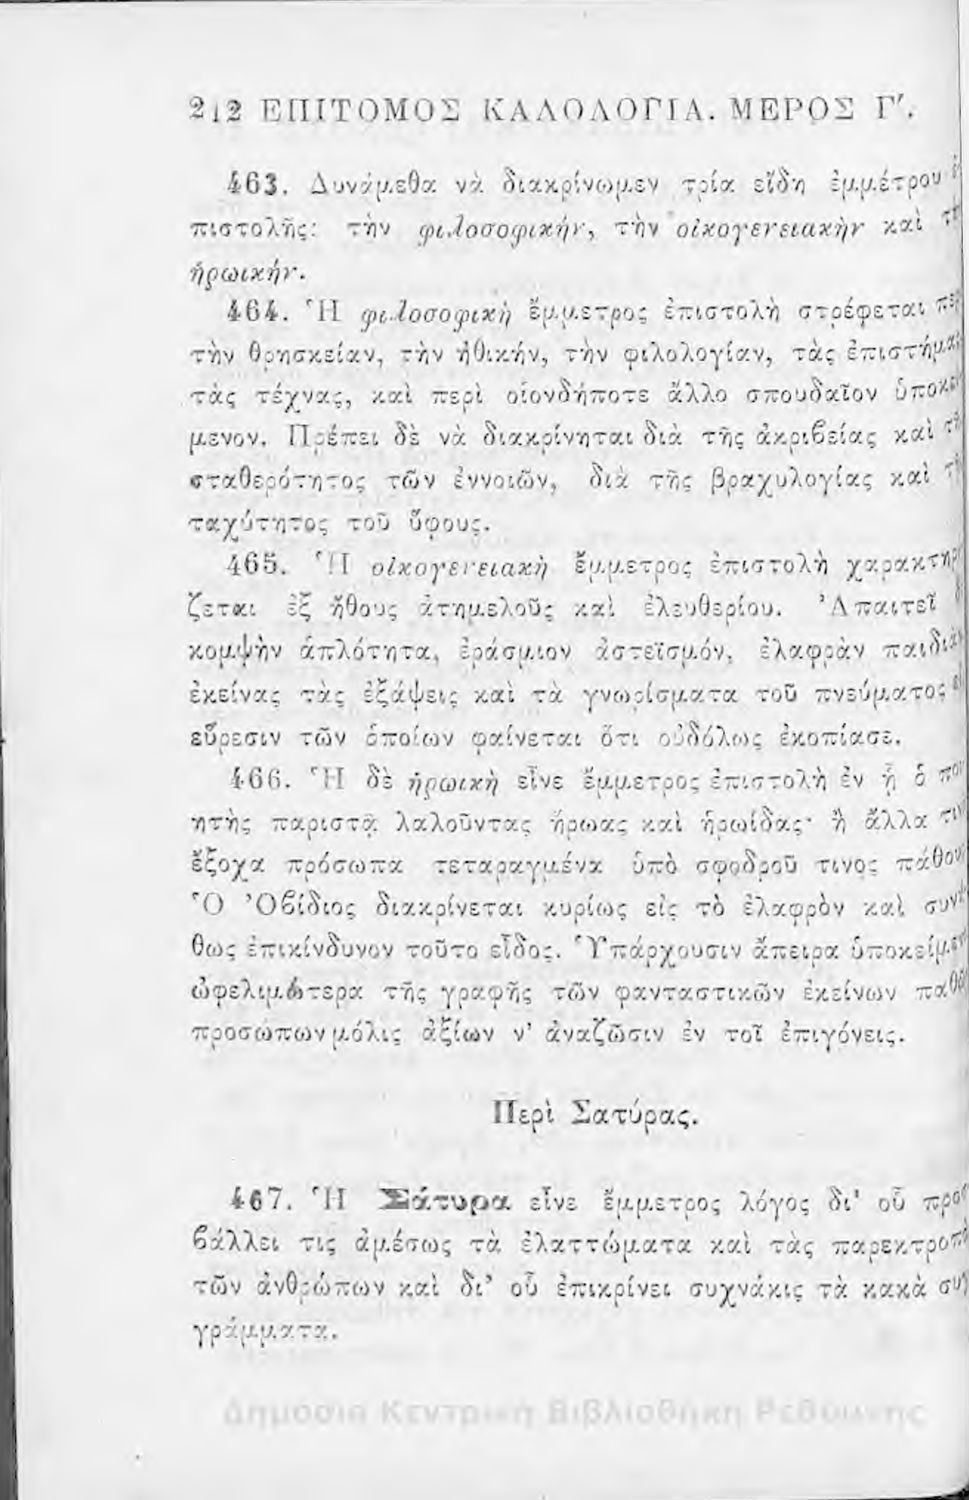 212 ΕΠΙΤΟΜΟΣ ΚΑΛΟΛΟΓΙΑ. ΜΕΡΟΣ Γʹ.
463. Δυνάμεθα νὰ διακρίνωμεν τρία εἴδη ἐμμέτρου ἐ
πιστολῆς: τὴν φιλοσοφικήν, τὴν οἰκογενειακὴν καὶ τὴ
ἡρωικήν.
464. Ἡ φιλοσοφικὴ ἔμμετρος ἐπιστολὴ στρέφεται περ
τὴν θρησκείαν, τὴν ἠθικήν, τὴν φιλολογίαν, τὰς ἐπιστήμα
τὰς τέχνας, καὶ περὶ οἱονδήποτε ἄλλο σπουδαῖον ὑποκεί
μενον. Πρέπει δὲ νὰ διακρίνηται διὰ τῆς ἀκριβείας καὶ τῆ
σταθερότητος τῶν ἐννοιῶν, διὰ τῆς βραχυλογίας καὶ τ
ταχύτητος τοῦ ὕφους.
465. Ἡ οἰκογενειακὴ ἔμμετρος ἐπιστολὴ χαρακτηρ
ζεται ἐξ ἤθους ἀτημελοῦς καὶ ἐλευθερίου. Ἀπαιτεῖ
κομψὴν ἁπλότητα, ἐράσμιον ἀστεϊσμόν, ἐλαφρὰν παιδιὰ
ἐκείνας τὰς ἐξάψεις καὶ τὰ γνωρίσματα τοῦ πνεύματος
εὕρεσιν τῶν ὁποίων φαίνεται ὅτι οὐδόλως ἐκοπίασε.
466. Ἡ δὲ ἡρωικὴ εἶνε ἔμμετρος ἐπιστολὴ ἐν ᾗ ὁ ποι
ητὴς παριστᾷ λαλοῦντας ἥρωας καὶ ἡρωίδας· ἢ ἄλλα τιν
ἔξοχα πρόσωπα τεταραγμένα ὑπὸ σφοδροῦ τινος πάθου
Ὁ Ὀβίδιος διακρίνεται κυρίως εἰς τὸ ἐλαφρὸν καὶ συν
θως ἐπικίνδυνον τοῦτο εἶδος. Ὑπάρχουσιν ἄπειρα ὑποκείμε
ὠφελιμώτερα τῆς γραφῆς τῶν φανταστικῶν ἐκείνων παθ
προσώπων μόλις ἀξίων ν' ἀναζῶσιν ἐν τοῖ ἐπιγόνεις.
Περὶ Σατύρας.
467. Ἡ Σάτυρα εἶνε ἔμμετρος λόγος δι' οὗ προ
βάλλει τις ἀμέσως τὰ ἐλαττώματα καὶ τὰς παρεκτροπὰ
τῶν ἀνθρώπων καὶ δι' οὗ ἐπικρίνει συχνάκις τὰ κακὰ συγ
γράμματα.
Δημόσια Κεντρική Βιβλιοθήκη Ρεθύμνης